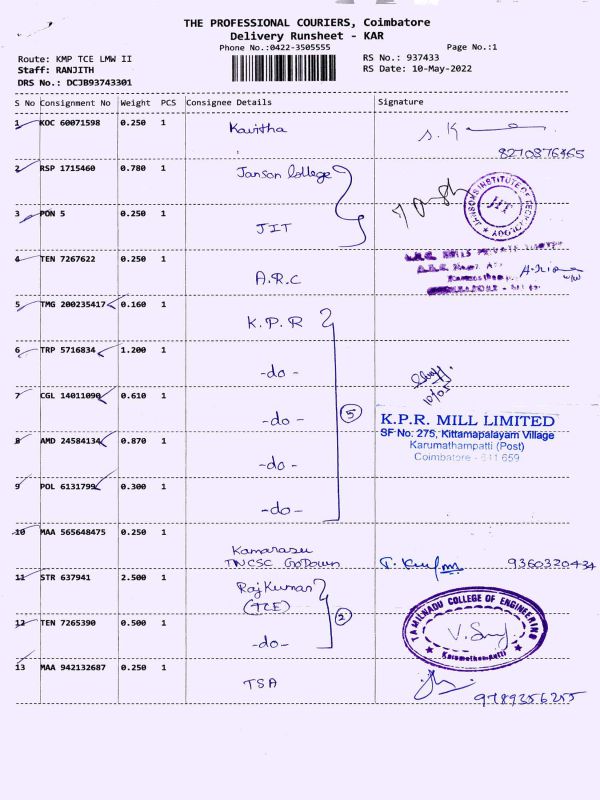 THE PROFESSIONAL COURIERS, Coimbatore
Delivery Runsheet - KAR
Phone No.:0422-3505555
Page No.:1
Route: KMP TCE LMW II
RS No.: 937433
Staff: RANJITH
RS Date: 10-May-2022
DRS No.: DCJB93743301
S No Consignment No Weight PCS Consignee Details Signature
1 KOC 60071598 0.250 1 Kavitha
8270876465
2 RSP 1715460 0.780 1 Janson College
JANSONS INSTITUTE OF TECHNOLOGY
JIT
3 PON 5 0.250 1 JIT
4 TEN 7267622 0.250 1 A.R.C
5 TMG 200235417 0.160 1 K.P.R
6 TRP 5716834 1.200 1 -do-
10/05
7 CGL 14011090 0.610 1 -do-
5
K.P.R. MILL LIMITED
SF No. 275, Kittamapalayam Village
Karumathampatti (Post)
Coimbatore - 641 659
8 AMD 24584134 0.870 1 -do-
9 POL 6131799 0.300 1 -do-
10 MAA 565648475 0.250 1 Kamarasu
TNCSC GoDown
9360320434
11 STR 637941 2.500 1 Rajkumar
(TCE)
2
TAMILNADU COLLEGE OF ENGINEERING
Karumathampatti
12 TEN 7265390 0.500 1 -do-
13 MAA 942132687 0.250 1 TSA
9789356255